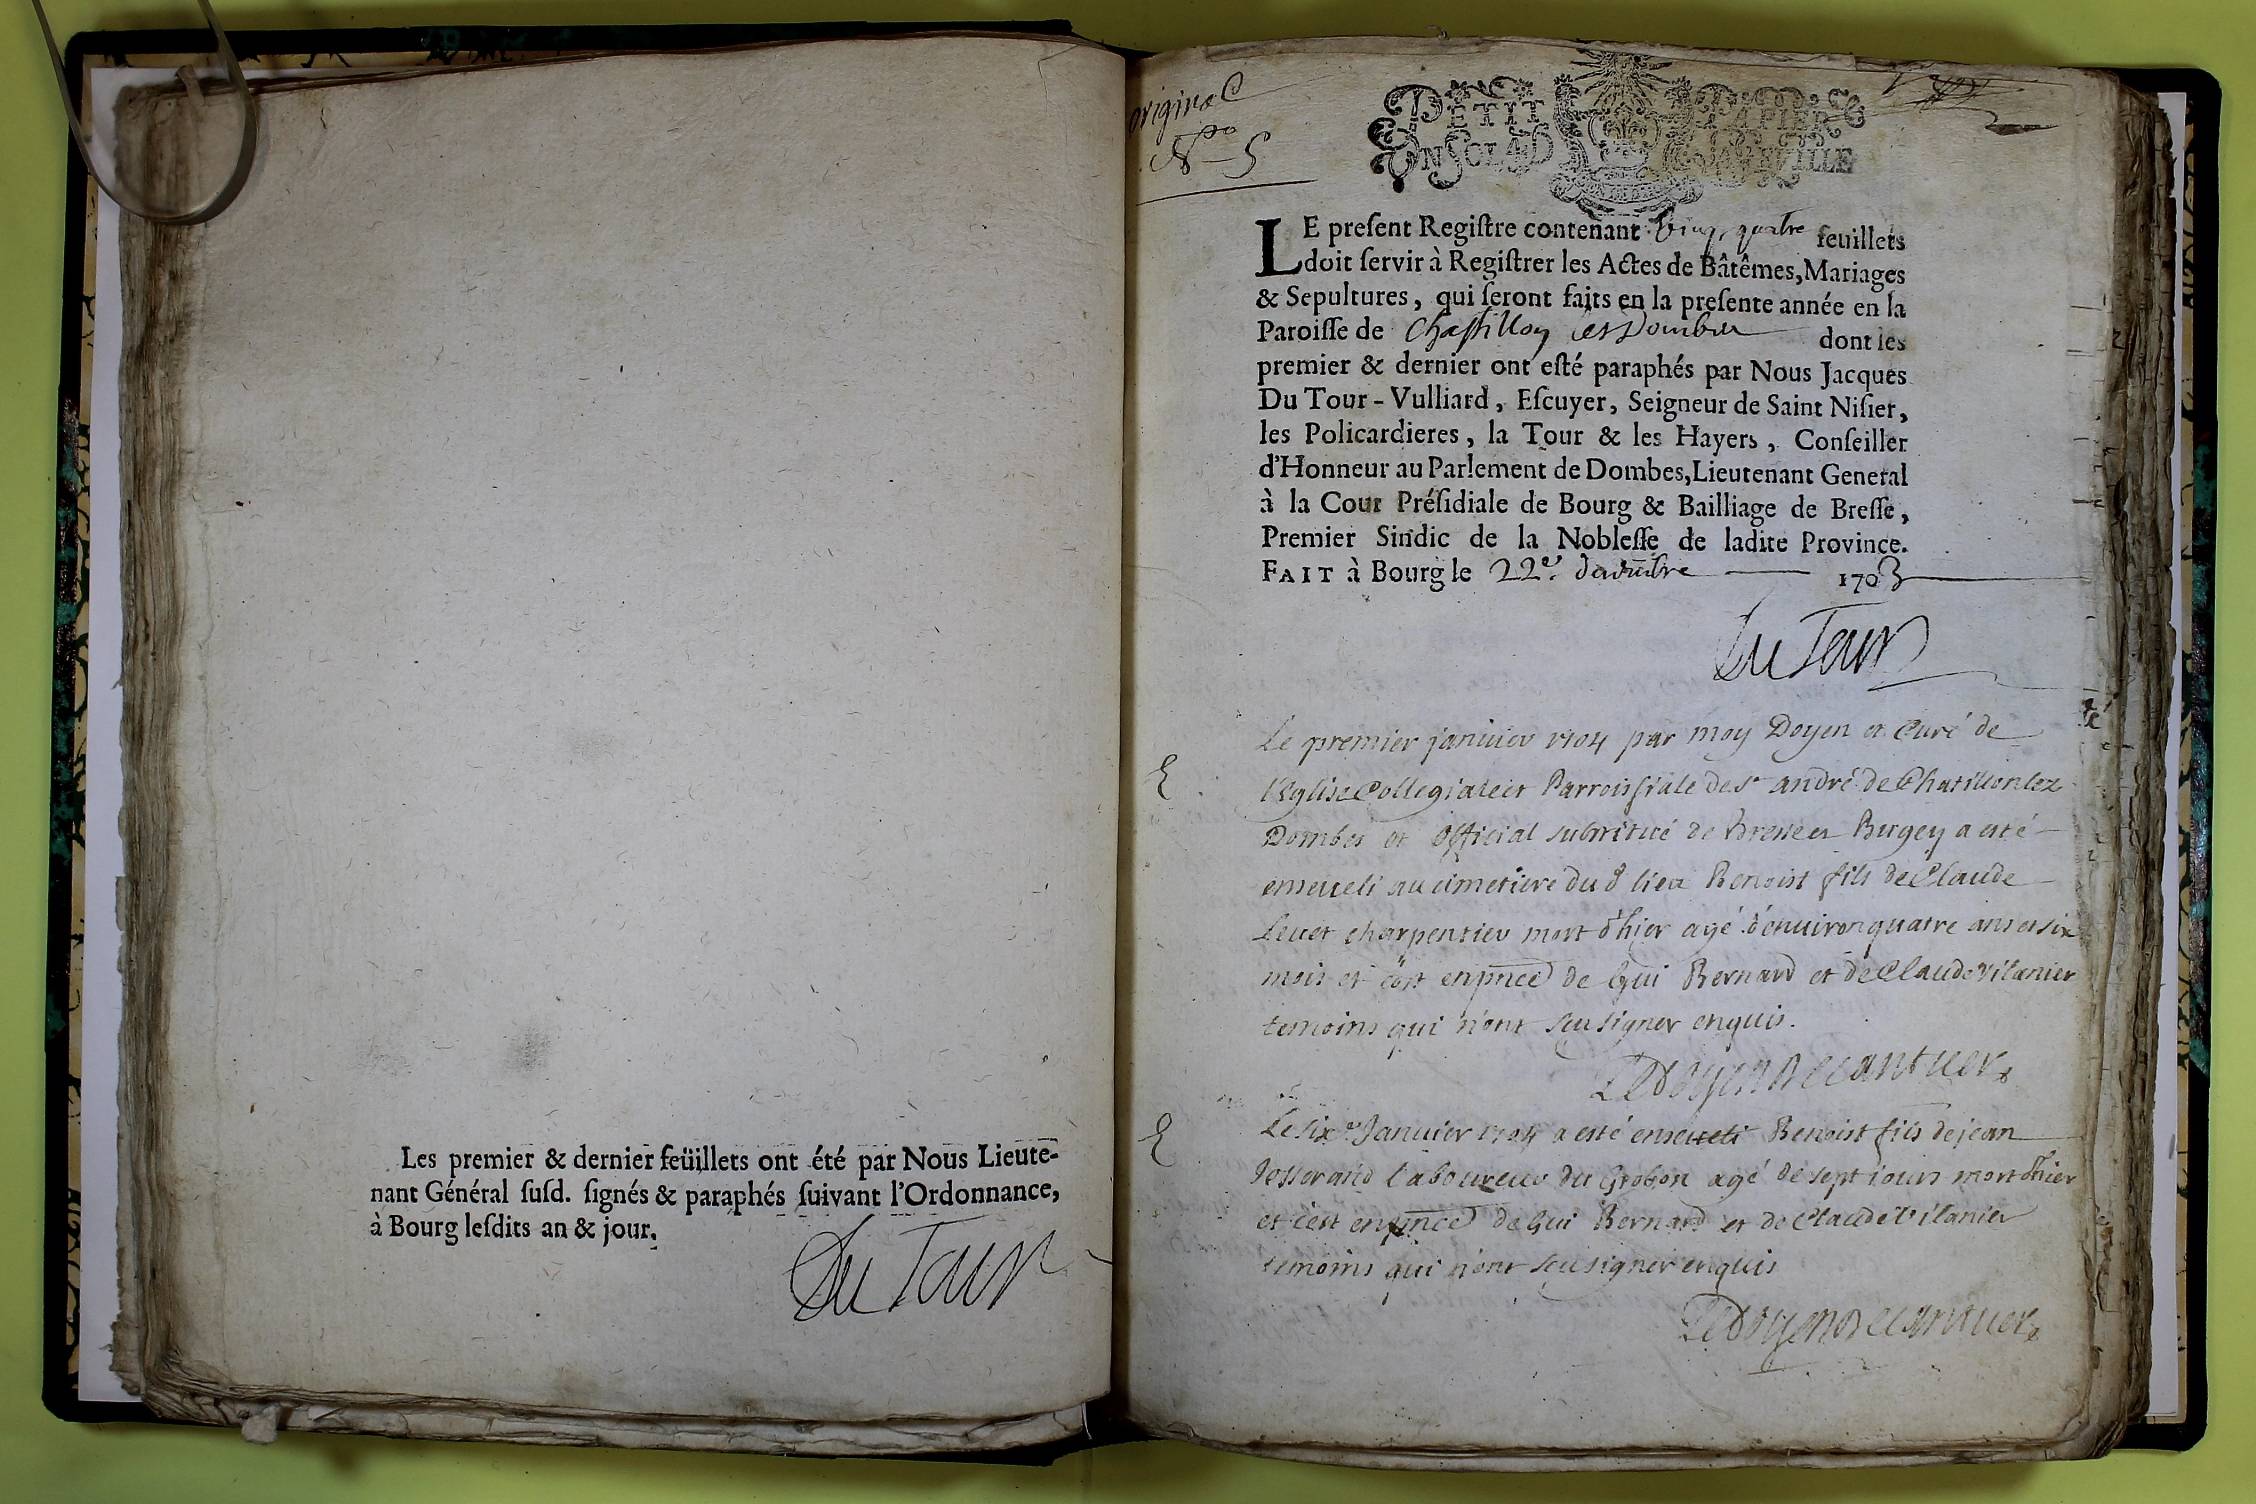 Les premier & dernier feüillets ont été par Nous Lieute-
nant Général ſuſd. ſignés & paraphés ſuivant l'Ordonnance,
à Bourg leſdits an & jour.
Du Tour
original
N° 5
PETIT PAPIER
UN SOL LA FEUILLE
LE preſent Regiſtre contenant vingt quatre feuillets
doit ſervir à Regiſtrer les Actes de Bâtêmes, Mariages
& Sepultures, qui ſeront faits en la preſente année en la
Paroiſſe de Chastillon les Dombes dont les
premier & dernier ont eſté paraphés par Nous Jacques
Du Tour-Vulliard, Eſcuyer, Seigneur de Saint Niſier,
les Policardieres, la Tour & les Hayers, Conſeiller
d'Honneur au Parlement de Dombes, Lieutenant General
à la Cour Préſidiale de Bourg & Bailliage de Breſſe,
Premier Sindic de la Nobleſſe de ladite Province.
FAIT à Bourg le 22e. 1703
Du Tour
Le premier janvier 1704 par moy Doyen et Curé de
l'Eglise Collegiale et Parroissiale de st andré de Chatillon lez
Dombes et Official substitué de Bresse et Bugey a esté
enseveli au cimetiere du d lieu Benoist fils de Claude
Levet charpentier mort d'hier agé d'environ quatre ans et six
mois et c'est en pnce de Gui Bernard et de Claude Vilanier
temoins qui n'ont sçu signer enquis.
Le Doyen
Le sixe Janvier 1704 a esté enseveli Benoist fils de jean
Josserand laboureur du Grobon agé de sept iours mort d'hier
et c'est en pnce de Gui Bernard et de Claude Vilanier
temoins qui n'ont sçu signer enquis
Le Doyen